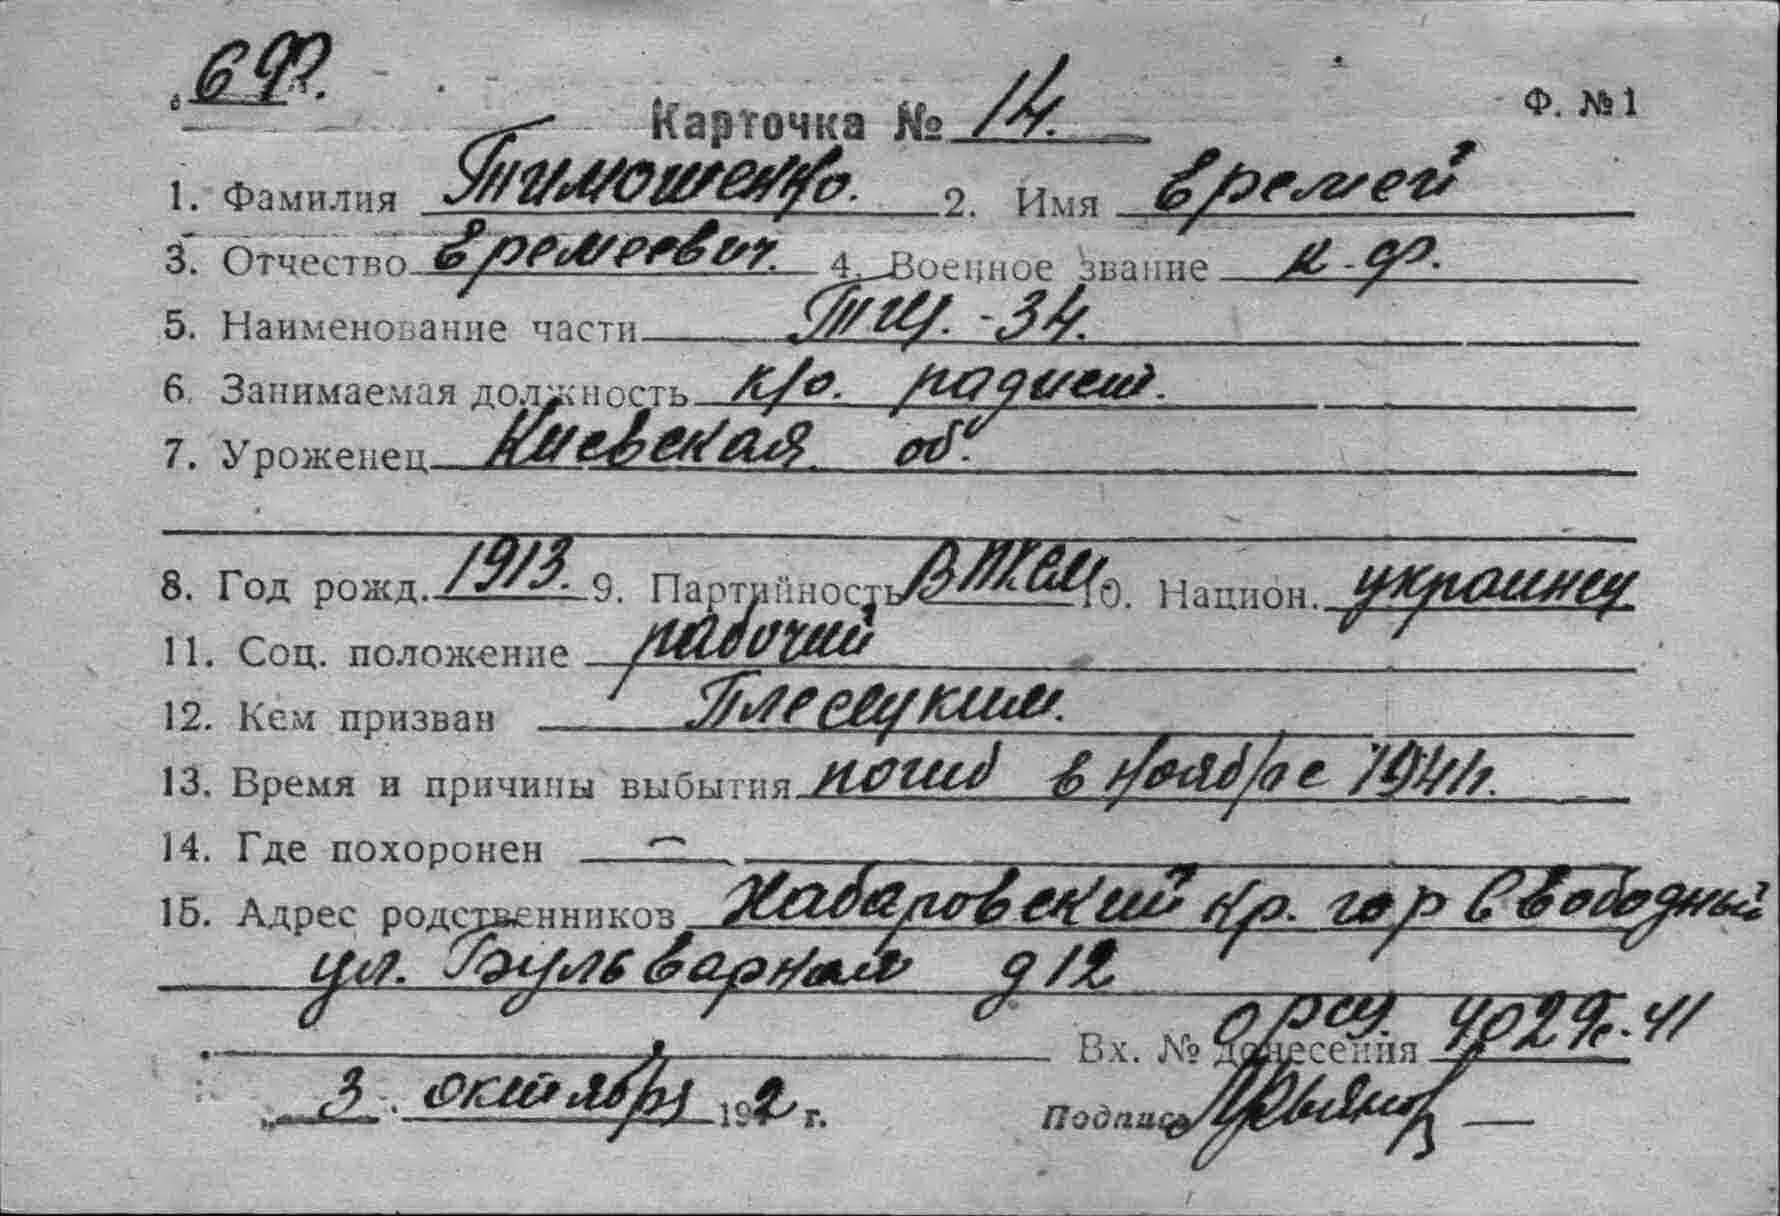 Карточка № 14. Ф. № 1
1. Фамилия Тимошенко. 2. Имя Еремей
3. Отчество Еремеевич. 4. Военное звание к.ф.
5. Наименование части ТЩ.-34.
6. Занимаемая должность к/о. радист.
7. Уроженец Киевская об.
8. Год рожд. 1913. 9. Партийность ВЛКСМ 10. Национ. украинец
11. Соц. положение рабочий
12. Кем призван Плесецким.
13. Время и причины выбытия погиб в ноябре 1941г.
14. Где похоронен —
15. Адрес родственников Хабаровский кр. гор Свободный
ул. Бульварная д 12
Вх. № донесения
3. октября 1942 г. Подпись